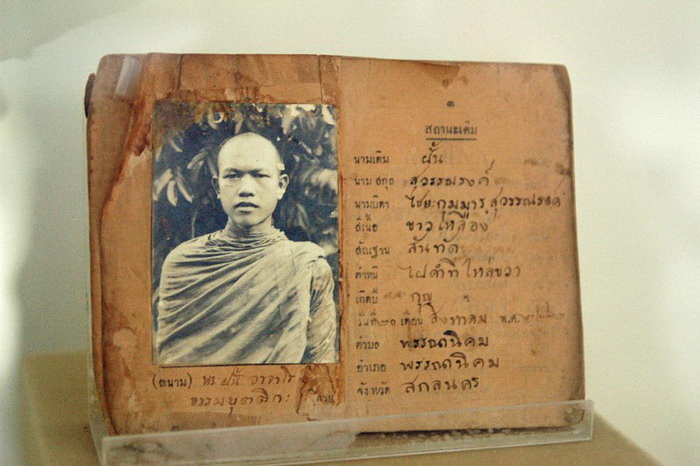 (ฉายา) พระ ฝั้น อาจาโร
ธรรมยุตติกะ
๓
สถานะเดิม
นามเดิม ฝั้น
นามสกุล สุวรรณรงค์
นามบิดา ไชยะกุมมาร สุวรรณรงค์
สีเนื้อ ขาวเหลือง
สัณฐาน สันทัด
ตำหนิ ไฝดำที่ไหล่ขวา
เกิดปี กุญ
วันที่ ๒๐ เดือน สิงหาคม พ.ศ.
ตำบล พรรณานิคม
อำเภอ พรรณานิคม
จังหวัด สกลนคร